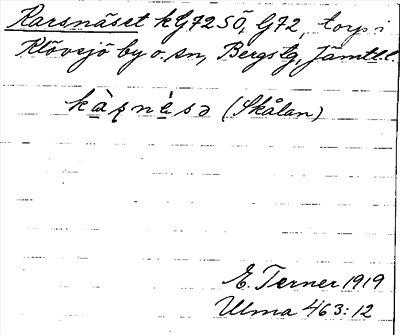 Karsnäset k G72 SÖ, G72, torp i
Klövsjö by o. sn, Bergs tg, Jämtl. l.
kàṣnä́sə (Skålan)
E. Terner 1919
Ulma 463:12